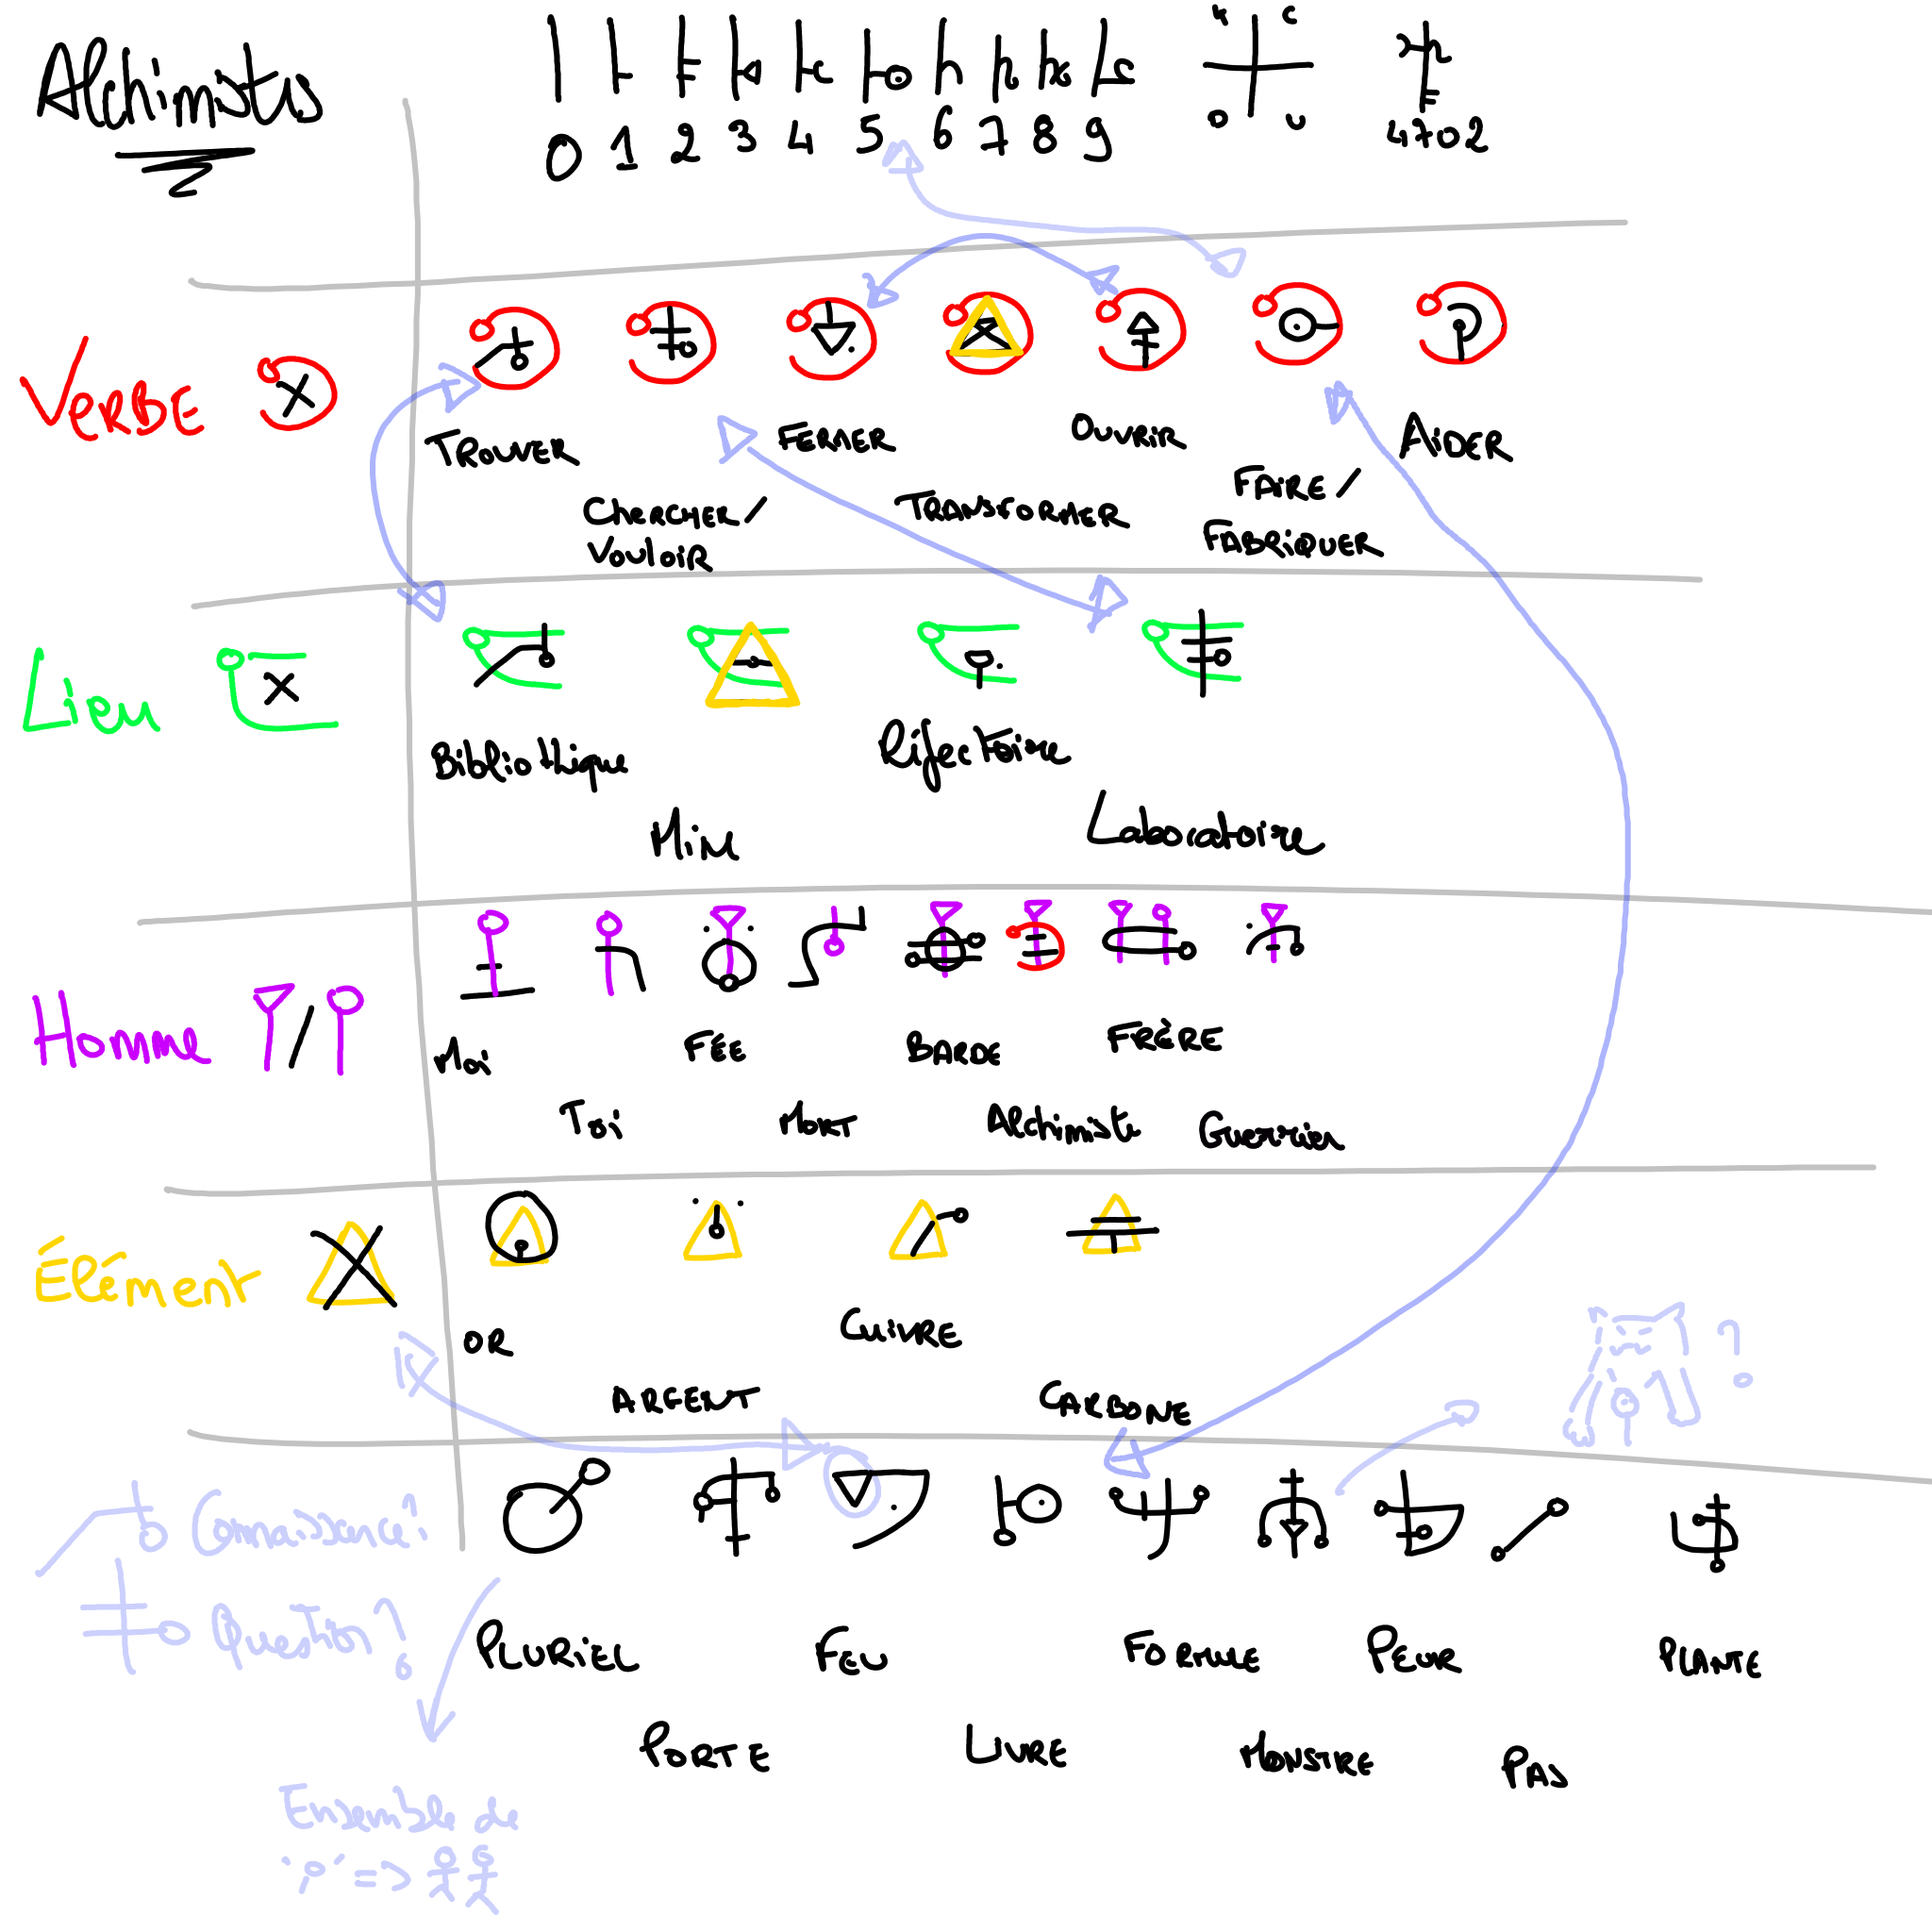 Alchimists
0 1 2 3 4 5 6 7 8 9
4702
VERBE
TROUVER
FERMER
OUVRIR
AIDER
CHERCHER/
VOULOIR
TRANSFORMER
FAIRE/
FABRIQUER
Lieu
Bibliothèque
Réfectoire
Mine
Laboratoire
Homme
Moi
FÉE
BARDE
FRÈRE
Toi
MORT
Alchimiste
Guerrier
Élément
OR
CUIVRE
ARGENT
CARBONE
?
Connaissance?
Question?
PLURIEL
FEU
FORMULE
PEUR
PLANTE
PORTE
LIVRE
MONSTRE
PAS
Ensemble de